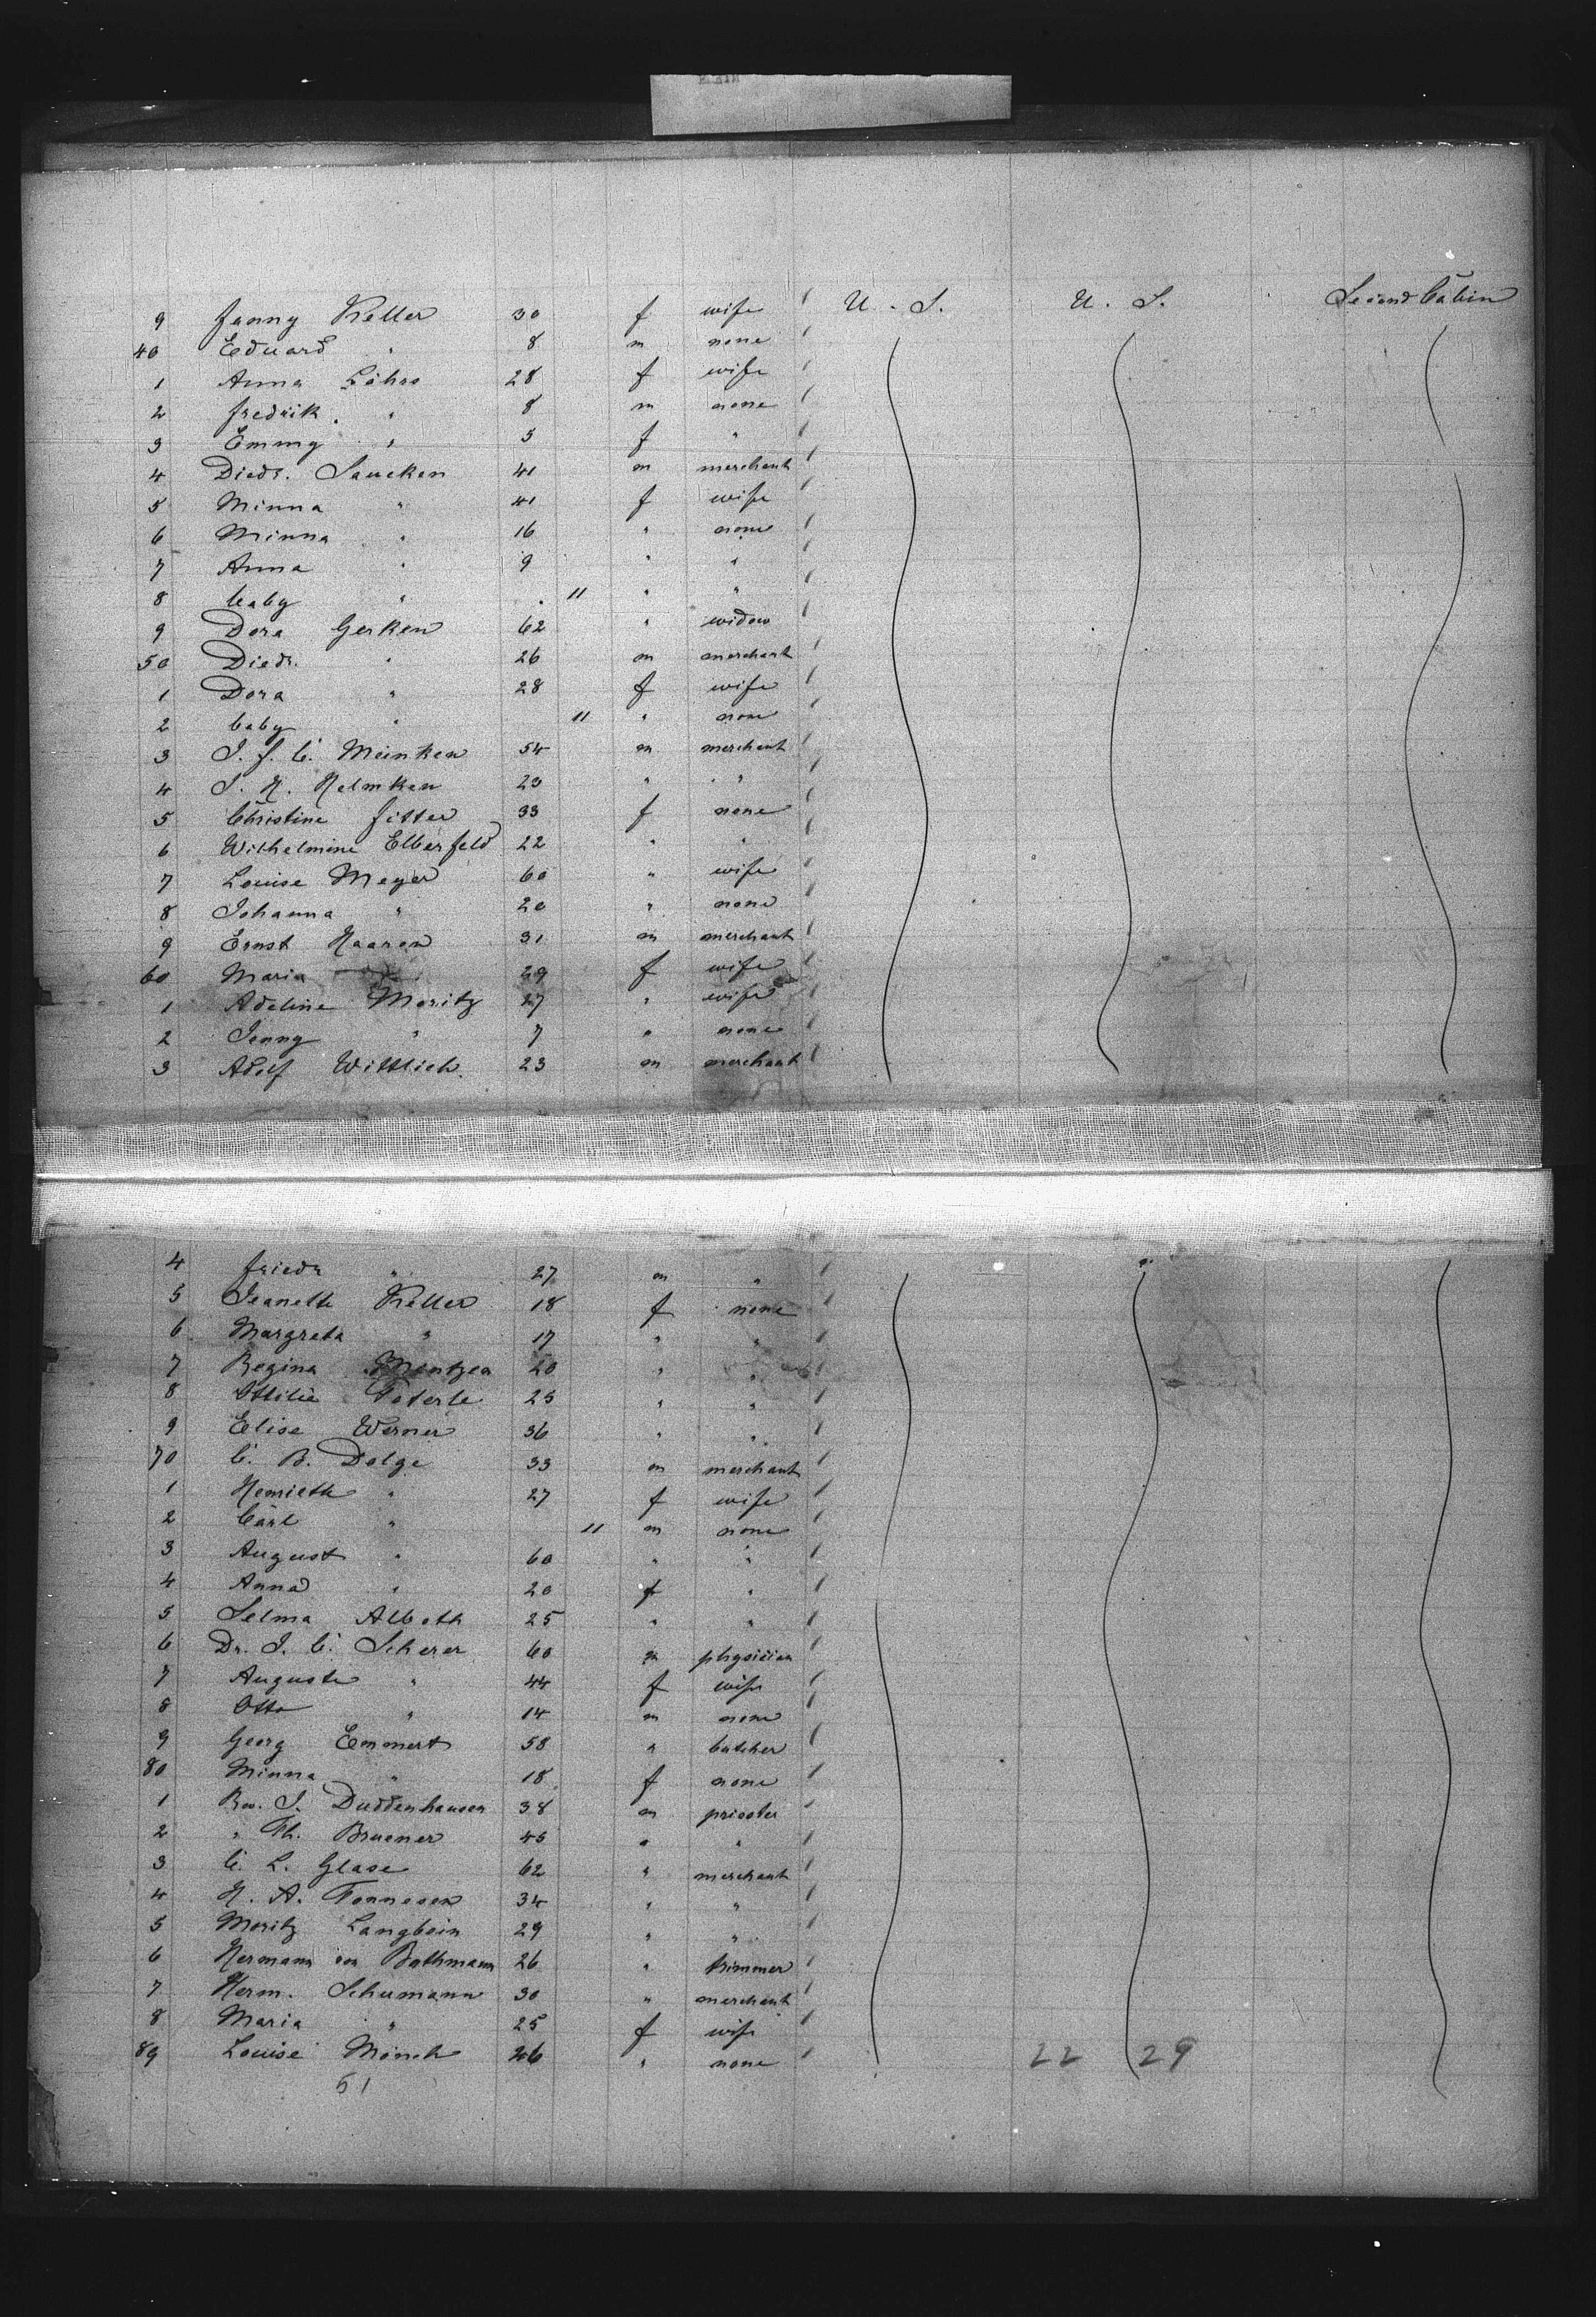 9 Fanny Keller 30 f wife U. S. U. S. Second Cabin
40 Eduard " 8 m none
1 Anna Löhrs 28 f wife
2 Fredrik " 8 m none
3 Emmy " 5 f "
4 Diedr. Saucken 41 m merchant
5 Minna " 41 f wife
6 Minna " 16 " none
7 Anna " 9 " "
8 baby " . 11 " "
9 Dora Gerken 62 " widow
50 Diedr. " 26 m merchant
1 Dora " 28 f wife
2 baby " 11 " none
3 J. F. C. Meinken 54 m merchant
4 J. H. Helmken 23 " "
5 Christine Fitter 33 f none
6 Wilhelmine Elberfeld 22 " "
7 Louise Meyer 60 " wife
8 Johanna " 20 " none
9 Ernst Haaren 31 m merchant
60 Maria " 29 f wife
1 Adeline Moritz 27 " wife
2 Jenny " 7 " none
3 Adolf Wittlich. 23 m merchant
4 Friedr " 27 m "
5 Jeanette Keller 18 f none
6 Margreta " 17 " "
7 Regina Mentzen 20 " "
8 Ottilie 25 " "
9 Elise Werner 36 " "
70 C. B. Dolge 33 m merchant
1 Henriette " 27 f wife
2 Carl " 11 m none
3 August " 60 " "
4 Anna " 20 f "
5 Selma Alboth 25 " "
6 Dr. J. C. Scherer 60 m physician
7 Auguste " 44 f wife
8 Otto " 14 m none
9 Georg Emmert 58 " butcher
80 Minna " 18 f none
1 Rev. J. Duddenhausen 38 m priester
2 " Th. Bruener 45 " "
3 C. L. Glase 62 " merchant
4 H. A. Tonnesen 34 " "
5 Moritz Langbein 29 " "
6 Hermann von Bothmann 26 " trimmer
7 Herm. Schumann 30 " merchant
8 Maria " 25 f wife
89 Louise Mönch 26 " none
51 22 29